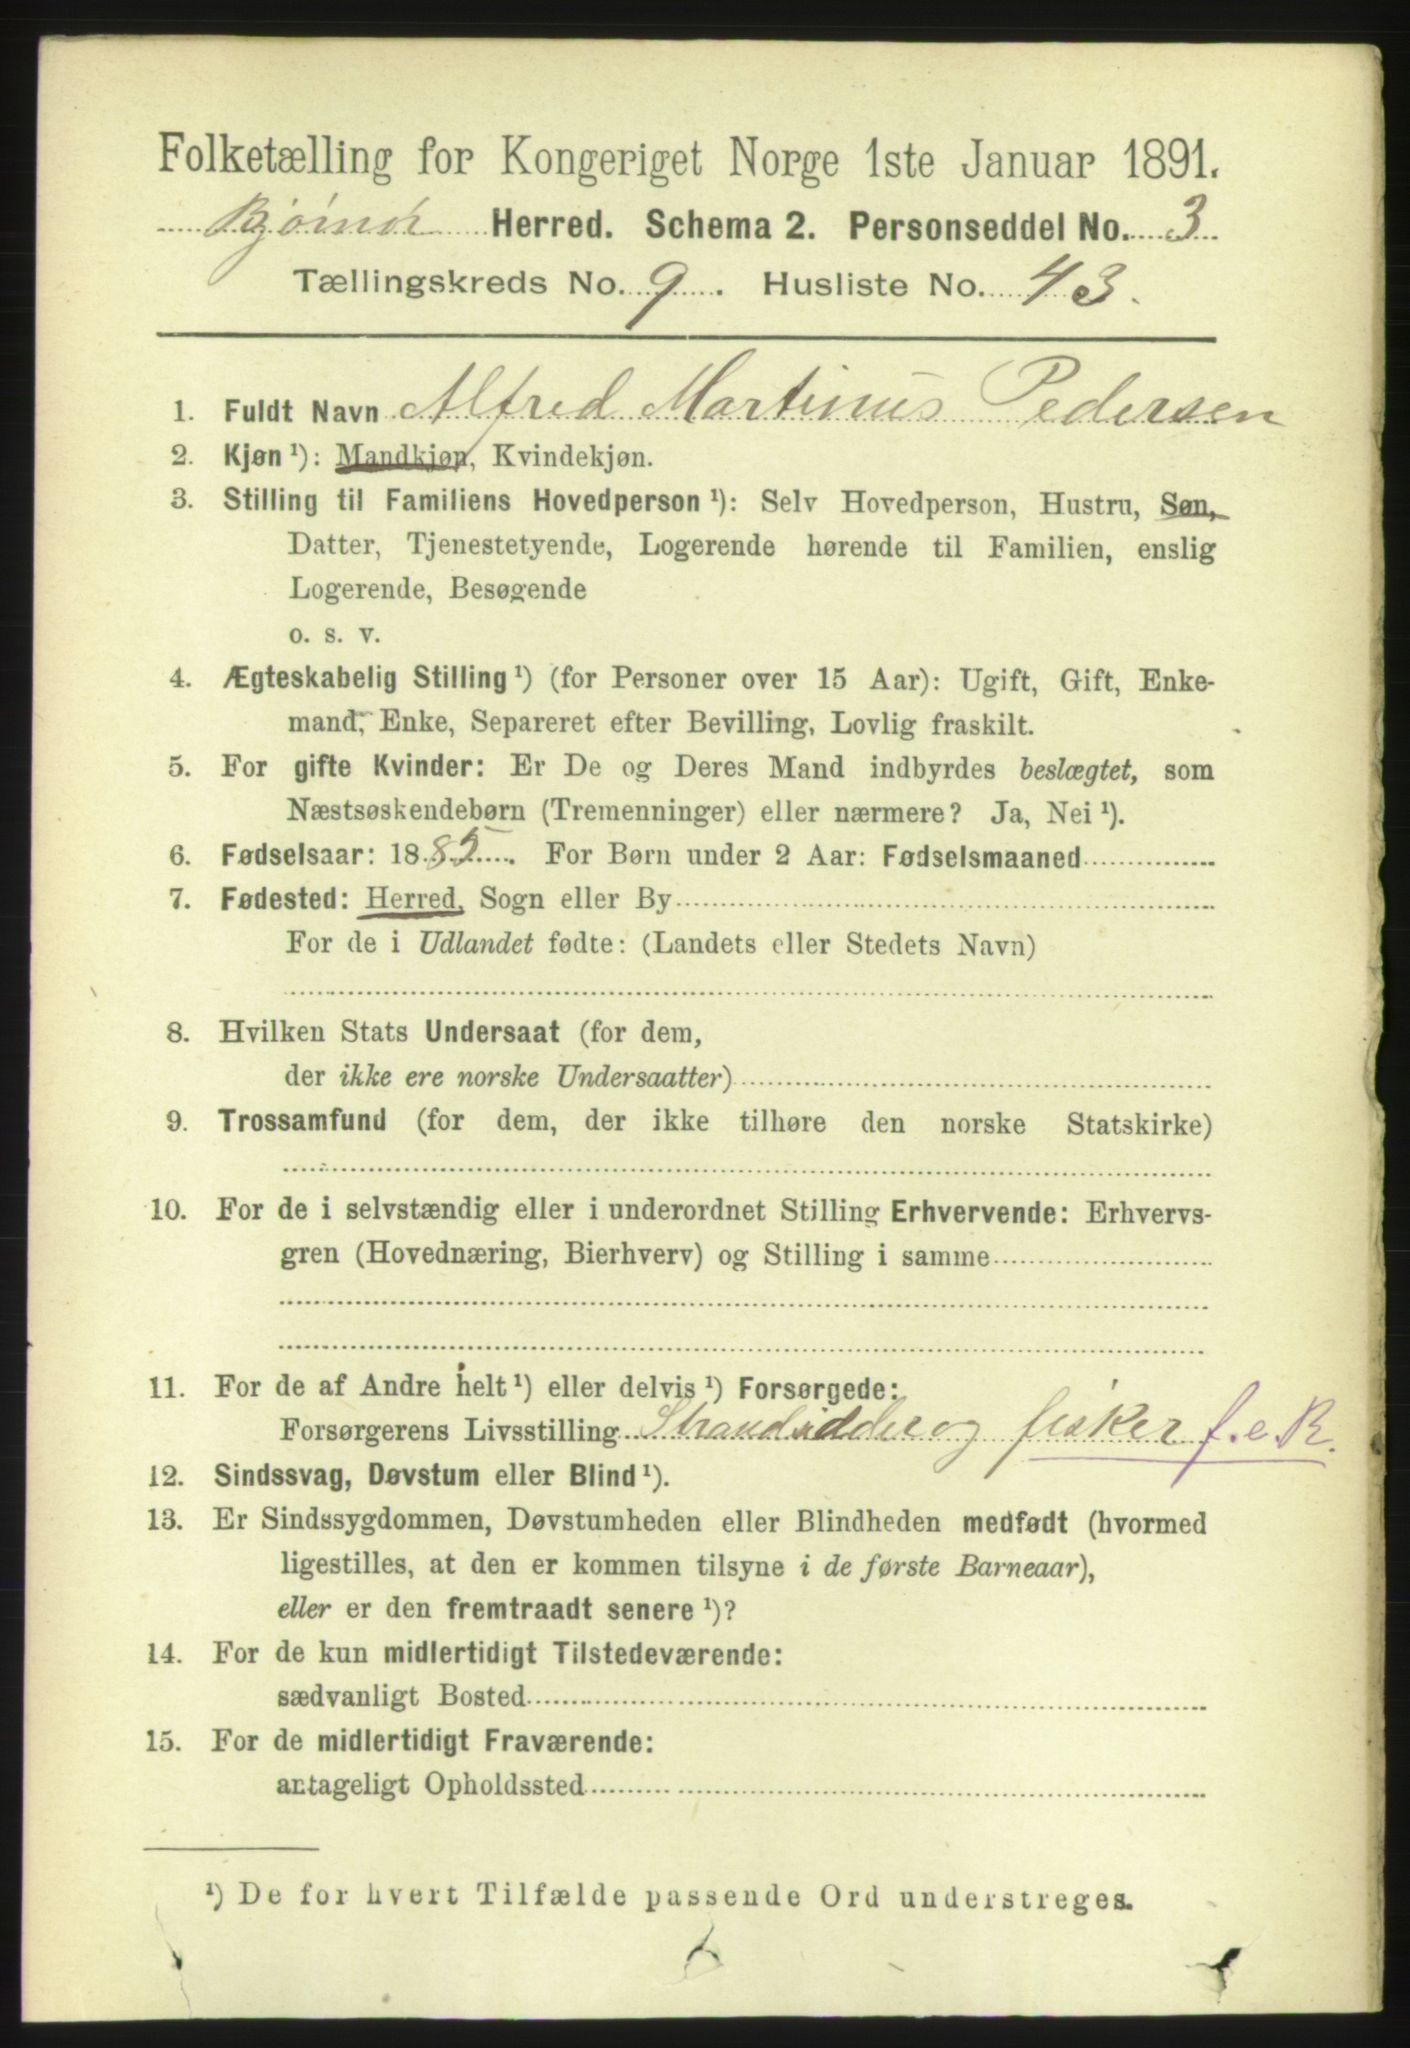 Folketælling for Kongeriget Norge 1ste Januar 1891.
Bjørnør Herred. Schema 2. Personseddel No. 3
Tællingskreds No. 9. Husliste No. 43.
1. Fuldt Navn Alfred Martinus Pedersen
2. Kjøn ¹): Mandkjøn, Kvindekjøn.
3. Stilling til Familiens Hovedperson ¹): Selv Hovedperson, Hustru, Søn,
Datter, Tjenestetyende, Logerende hørende til Familien, enslig
Logerende, Besøgende
o. s. v.
4. Ægteskabelig Stilling ¹) (for Personer over 15 Aar): Ugift, Gift, Enke-
mand, Enke, Separeret efter Bevilling, Lovlig fraskilt.
5. For gifte Kvinder: Er De og Deres Mand indbyrdes beslægtet, som
Næstsøskendebørn (Tremenninger) eller nærmere? Ja, Nei ¹).
6. Fødselsaar: 1885. For Børn under 2 Aar: Fødselsmaaned
7. Fødested: Herred, Sogn eller By
For de i Udlandet fødte: (Landets eller Stedets Navn)
8. Hvilken Stats Undersaat (for dem,
der ikke ere norske Undersaatter)
9. Trossamfund (for dem, der ikke tilhøre den norske Statskirke)
10. For de i selvstændig eller i underordnet Stilling Erhvervende: Erhvervs-
gren (Hovednæring, Bierhverv) og Stilling i samme
11. For de af Andre helt ¹) eller delvis ¹) Forsørgede:
Forsørgerens Livsstilling Strandsidder og fisker f.e.R.
12. Sindssvag, Døvstum eller Blind ¹).
13. Er Sindssygdommen, Døvstumheden eller Blindheden medfødt (hvormed
ligestilles, at den er kommen tilsyne i de første Barneaar),
eller er den fremtraadt senere ¹)?
14. For de kun midlertidigt Tilstedeværende:
sædvanligt Bosted
15. For de midlertidigt Fraværende:
antageligt Opholdssted
¹) De for hvert Tilfælde passende Ord understreges.